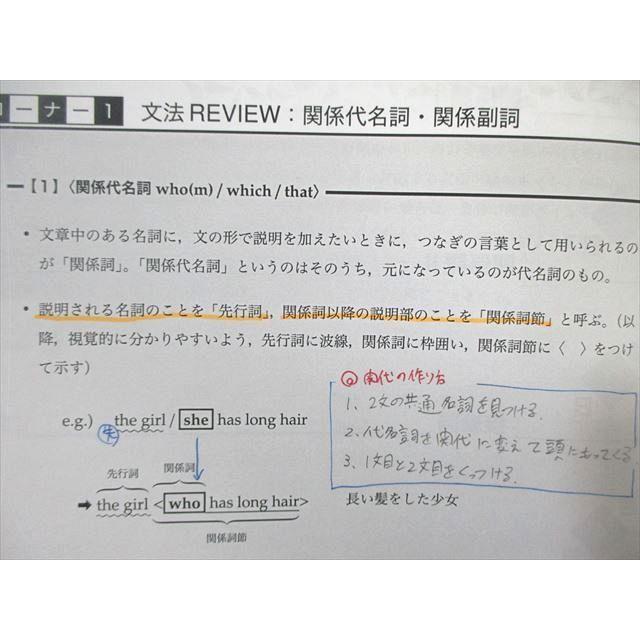 コーナー1 文法REVIEW：関係代名詞・関係副詞
【1】〈関係代名詞 who(m) / which / that〉
• 文章中のある名詞に，文の形で説明を加えたいときに，つなぎの言葉として用いられるの
が「関係詞」。「関係代名詞」というのはそのうち，元になっているのが代名詞のもの。
• 説明される名詞のことを「先行詞」，関係詞以降の説明部のことを「関係詞節」と呼ぶ。（以
降，視覚的に分かりやすいよう，先行詞に波線，関係詞に枠囲い，関係詞節に〈 〉をつけ
て示す）
◎ 関代の作り方
1、2文の共通名詞を見つける.
2、代名詞を関代に変えて頭にもってくる
3、1文目と2文目をくっつける.
e.g.) the girl / she has long hair
先
先行詞 関係詞
➡ the girl <who has long hair>
長い髪をした少女
関係詞節